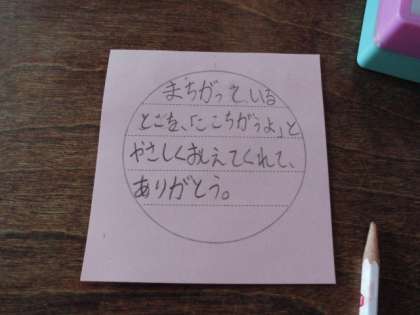 まちがっている
とこを、「ここちがうよ」と
やさしくおしえてくれて、
ありがとう。